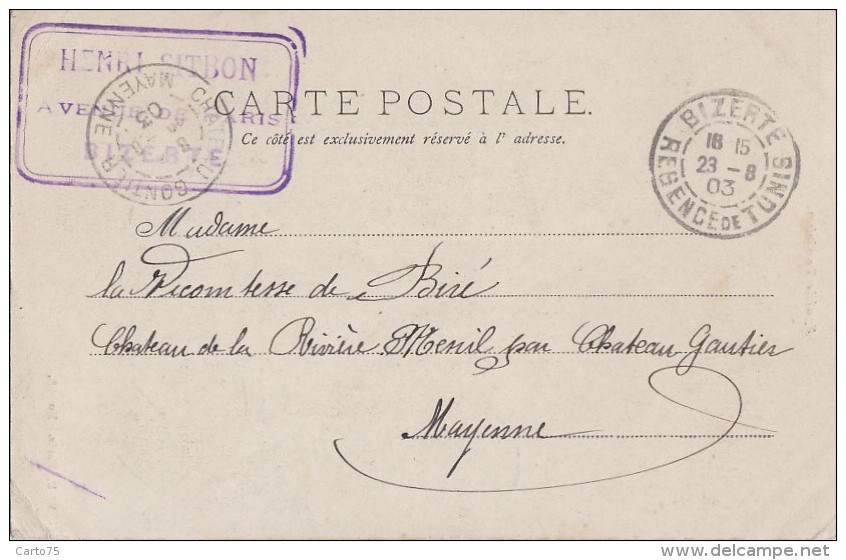 HENRI SITBON
AVENUE DE PARIS
BIZERTE
CHATEAU GONTIER
MAYENNE
03
CARTE POSTALE.
Ce côté est exclusivement réservé à l'adresse.
BIZERTE
18 15
23 - 8
03
REGENCE DE TUNIS
Madame
la Vicomtesse de Biré
Chateau de la Rivière Menil par Chateau Gontier
Mayenne
Carto75
www.delcampe.net